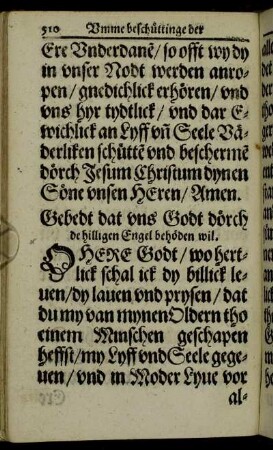 510 Vmme beschüttinge der
Ere Vnderdanē / so offt wy dy
in vnser Nodt werden anro-
pen / gnedichlick erhören / vnd
vns hyr tydtlick / vnd dar E-
wichlick an Lyff vñ Seele Vä-
derliken schüttē vnd beschermē
dörch Jesum Christum dynen
Söne vnsen HEren / Amen.
Gebedt dat vns Godt dörch
de hilligen Engel behöden wil.
O HERE Godt / wo hert-
lick schal ick dy billick le-
uen / dy lauen vnd prysen / dat
du my van mynen Oldern tho
einem Minschen geschapen
heffst / my Lyff vnd Seele gege-
uen / vnd in Moder Lyue vor
al-